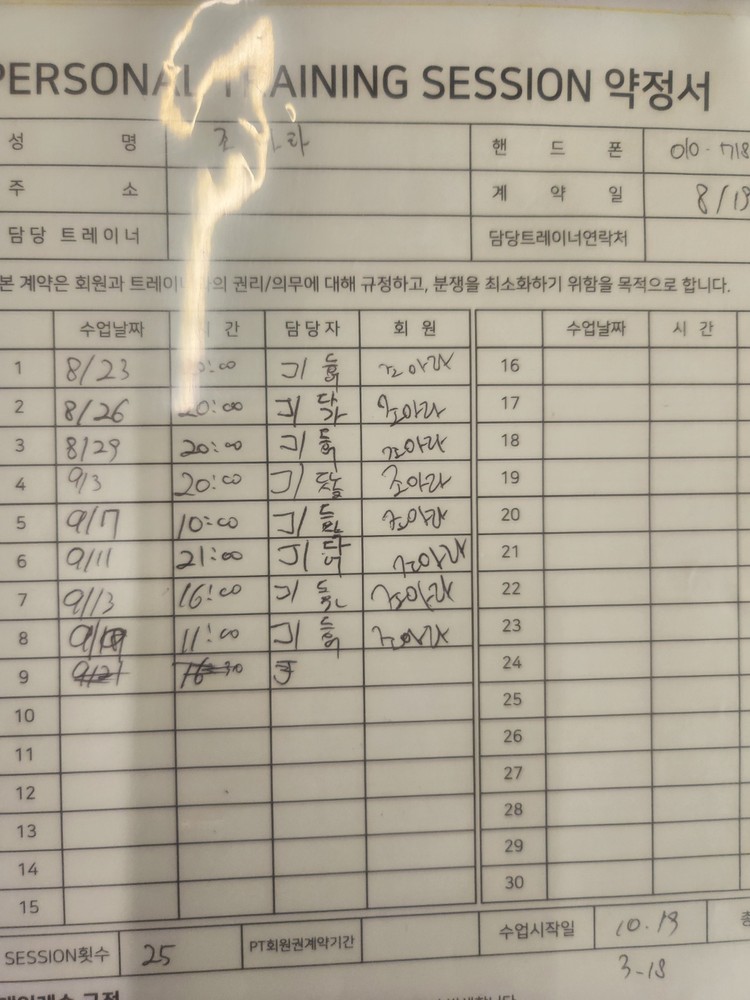 PERSONAL TRAINING SESSION 약정서
성 명 조아라 핸 드 폰 010-718
주 소 계 약 일 8/19
담당 트레이너 담당트레이너연락처
본 계약은 회원과 트레이 의 권리/의무에 대해 규정하고, 분쟁을 최소화하기 위함을 목적으로 합니다.
수업날짜 시 간 담당자 회 원 수업날짜 시 간
1 8/23 20:00 조아라 16
2 8/26 20:00 조아라 17
3 8/29 20:00 조아라 18
4 9/3 20:00 조아라 19
5 9/7 10:00 조아라 20
6 9/11 21:00 조아라 21
7 9/13 16:00 조아라 22
8 11:00 조아라 23
9 24
10 25
11 26
12 27
13 28
14 29
15 30
SESSION횟수 25 PT회원권계약기간 수업시작일 10.19 총
3-18